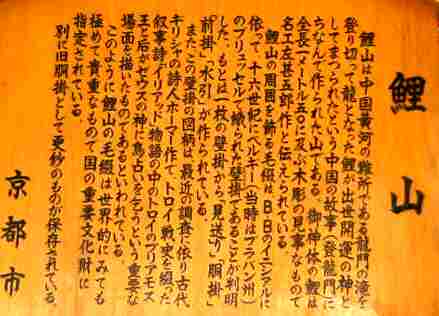 鯉山
鯉山は中国黄河の難所である龍門の滝を
登り切って龍となった鯉が出世開運の神と
してまつられたという中国の故事(登龍門)に
ちなんで作られた山である。御神体の鯉は
全長一メートル五〇に及ぶ木彫の見事なもので
名工左甚五郎作と伝えられている。
鯉山の周囲を飾る毛綴はB・Bのイニシァルに
依って、十六世紀にベルギー(当時はブラバン州)
のブリュッセルで織られた壁掛であることが判明
した。もとは一枚の壁掛から「見送り」「胴掛」
「前掛」「水引」が作られている。
また、この壁掛の図柄は、最近の調査に依り古代
ギリシャの詩人ホーマー作で、トロイ戦争を綴った
叙事詩「イリアッド」物語の中のトロイのプリアモス
王と后がゼウスの神に鳥占いを乞うという重要な
場面を描いたものであるといわれている。
このように鯉山の毛綴は世界的にみても
極めて貴重なもので国の重要文化財に
指定されている。
別に旧胴掛として更紗のものが保存されている。
京都市